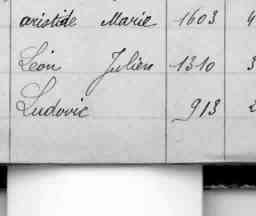 aristide Marie 1603
Léon Julien 1310 3
Ludovic 913 2